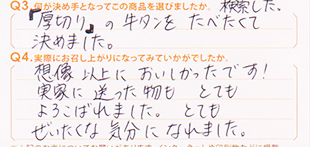 Q3. 何が決め手となってこの商品を選びましたか。 検索した。
『厚切り』の牛タンを たべたくて
決めました。
Q4. 実際にお召し上がりになってみていかがでしたか。
想像以上に おいしかったです!
実家に送った物も とても
よろこばれました。とても
ぜいたくな気分になれました。